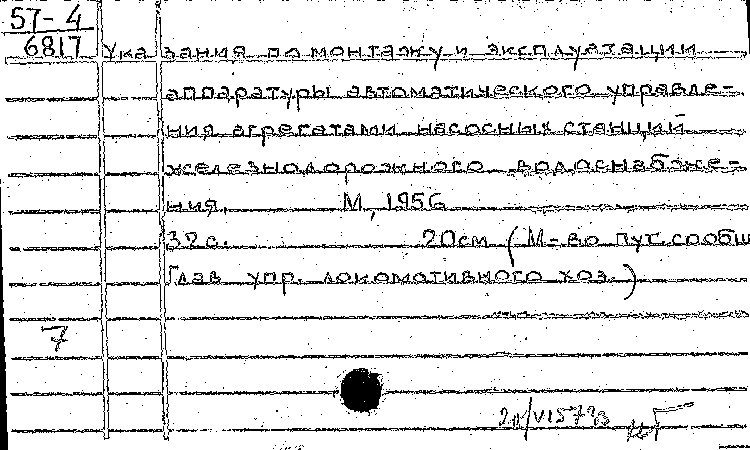 57-4
6817 Указания по монтажу и эксплуатации
аппаратуры автоматического управле-
ния агрегатами насосных станций
железнодорожного водоснабже-
ния. М, 1956
32с. 20см (М-во пут. сообщ
Глав упр. локомотивного хоз.)
7